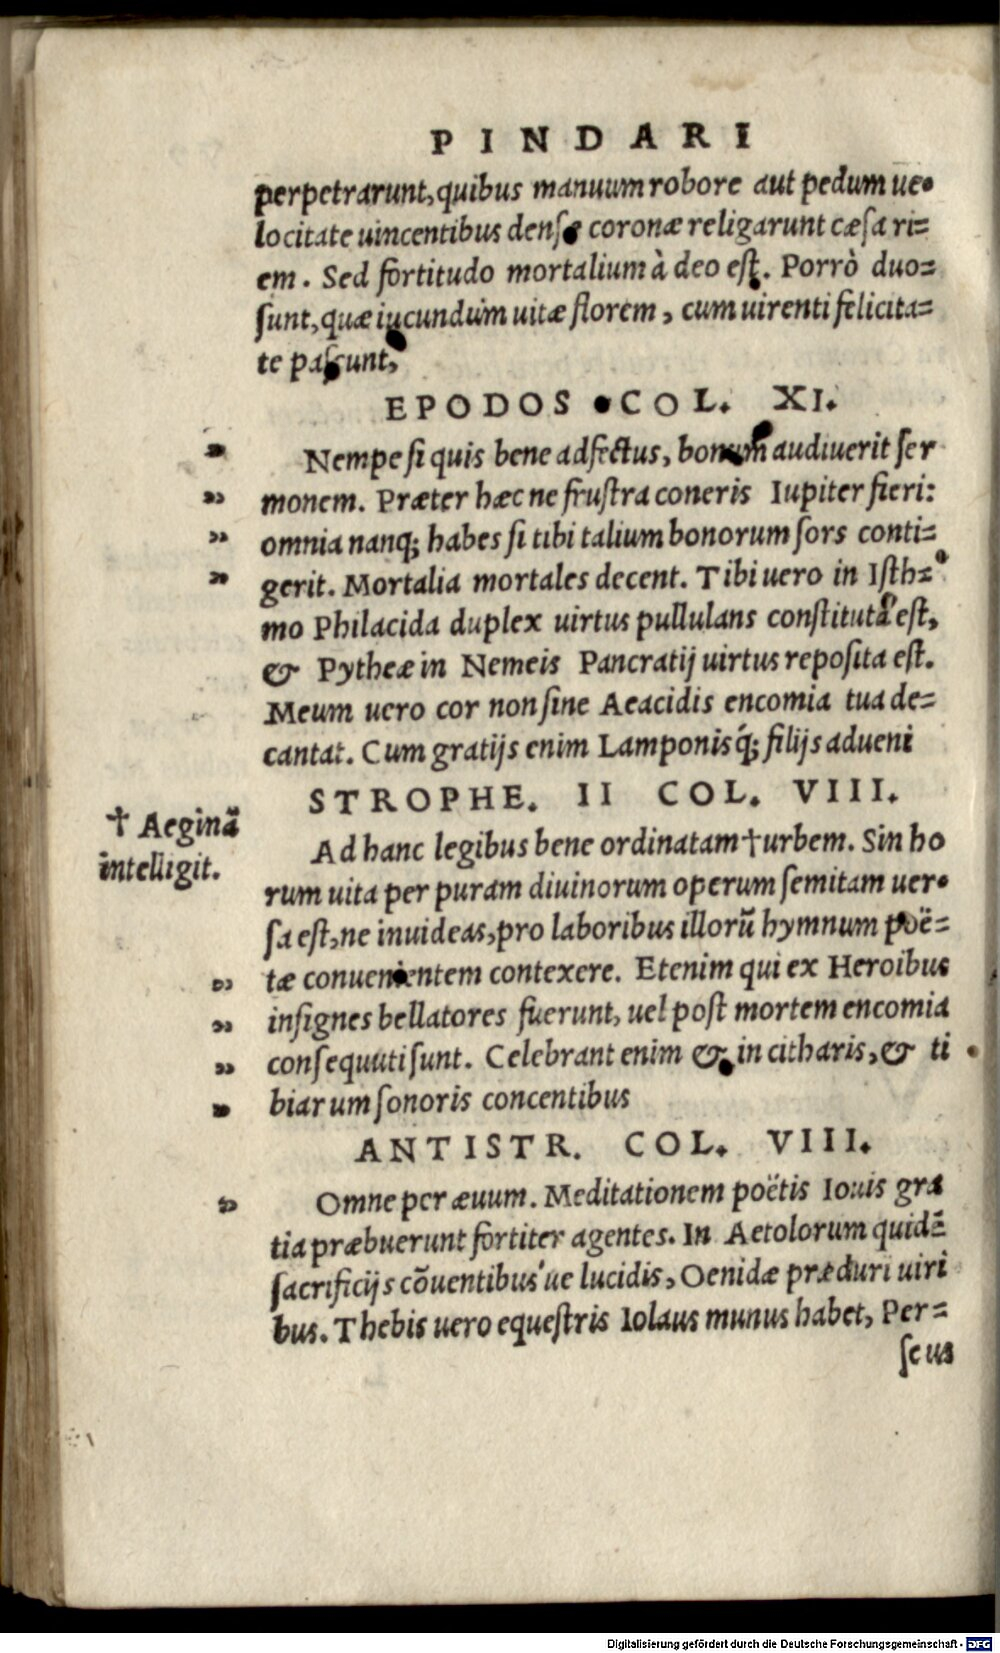 PINDARI
perpetrarunt, quibus manuum robore aut pedum ue-
locitate uincentibus densæ coronæ religarunt cæsari=
em. Sed fortitudo mortalium à deo est. Porrò duo=
sunt, quæ iucundum uitæ florem, cum uirenti felicita=
te pascunt,
EPODOS COL. XI.
" Nempe si quis bene adfectus, bonum audiuerit ser
" monem. Præter hæc ne frustra coneris Iupiter fieri:
" omnia nanq; habes si tibi talium bonorum sors conti=
" gerit. Mortalia mortales decent. Tibi uero in Isth=
mo Philacida duplex uirtus pullulans constituta est,
& Pytheæ in Nemeis Pancratij uirtus reposita est.
Meum uero cor non sine Aeacidis encomia tua de=
cantat. Cum gratijs enim Lamponis q́; filijs adueni
STROPHE. II COL. VIII.
† Aeginā
intelligit.
Ad hanc legibus bene ordinatam † urbem. Sin ho
rum uita per puram diuinorum operum semitam uer-
sa est, ne inuideas, pro laboribus illorū hymnum poë=
" tæ conuenientem contexere. Etenim qui ex Heroibus
" insignes bellatores fuerunt, uel post mortem encomia
" consequuti sunt. Celebrant enim & in citharis, & ti
" biarum sonoris concentibus
ANTISTR. COL. VIII.
" Omne per æuum. Meditationem poëtis Iouis gra
tia præbuerunt fortiter agentes. In Aetolorum quidē
sacrificijs cōuentibus'ue lucidis, Oenidæ præduri uiri
bus. Thebis uero equestris Iolaus munus habet, Per=
seus
Digitalisierung gefördert durch die Deutsche Forschungsgemeinschaft - DFG